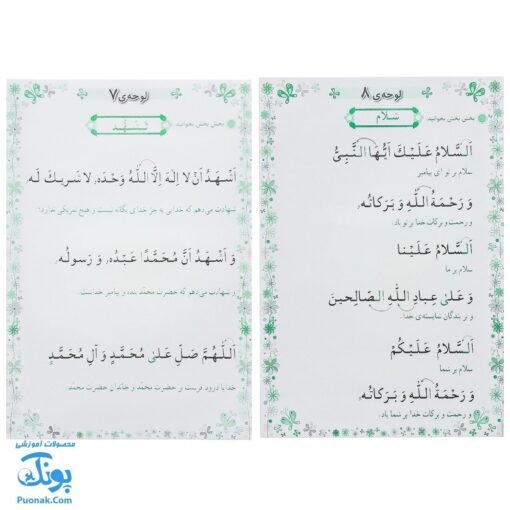 لوحه‌ی ۸
بخش بخش بخوانید.
سَلام
اَلسَّلامُ عَلَيْكَ اَيُّهَا النَّبِيُّ
سلام بر تو ای پیامبر
وَ رَحْمَةُ اللّٰهِ وَ بَرَكاتُهُ،
و رحمت و برکات خدا بر تو باد.
اَلسَّلامُ عَلَيْنا
سلام بر ما
وَ عَلىٰ عِبادِ اللّٰهِ الصّالِحينَ
و بر بندگان شایسته‌ی خدا.
اَلسَّلامُ عَلَيْكُمْ
سلام بر شما
وَ رَحْمَةُ اللّٰهِ وَ بَرَكاتُهُ،
و رحمت و برکات خدا بر شما باد.
لوحه‌ی ۷
بخش بخش بخوانید.
تَشَهُّد
اَشْهَدُ اَنْ لا اِلٰهَ اِلَّا اللّٰهُ وَحْدَهُ، لا شَريكَ لَه،
شهادت می‌دهم که خدایی به جز خدای یگانه نیست و هیچ شریکی ندارد؛
وَ اَشْهَدُ اَنَّ مُحَمَّدًا عَبْدُهُ، وَ رَسولُه،
و شهادت می‌دهم که حضرت محمّد بنده و پیامبر خداست.
اَللّٰهُمَّ صَلِّ عَلىٰ مُحَمَّدٍ وَ آلِ مُحَمَّدٍ
خدایا درود فرست بر حضرت محمّد و خاندان حضرت محمّد.
محصولات آموزشی
پونک
Puonak.Com